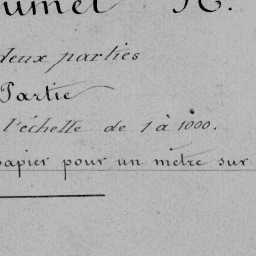 deux parties
Partie
l'échelle de 1 à 1000.
papier pour un mètre sur